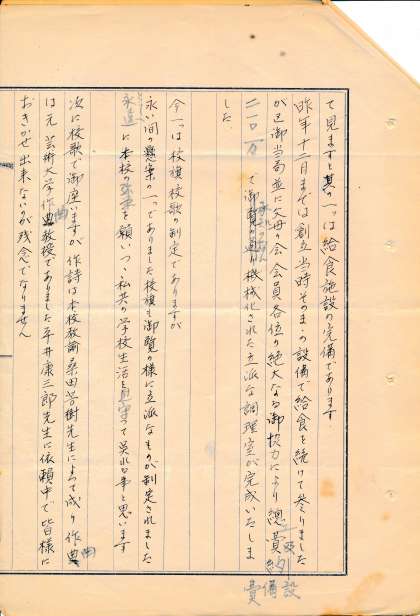 て見ますと其の一つは給食施設の完備であります
昨年十二月までは創立当時そのまゝの設備で給食を続けて参りました
が区御当局並に父母の会会員各位の絶大なる御協力により総費約
二一〇万で御覧の通り機械化された立派な調理室が完成いたしま
した
今一つは校旗校歌の制定でありますが
永い間の懸案の一つでありました校旗も御覧の様に立派なものが制定されました
永遠に本校の弥栄を願いつゝ私共の学校生活を見守って呉れる事と思います
次に校歌で御座いますが作詩は本校教諭桑田苦樹先生によって成り作曲
は元芸術大学作曲教授でありました平井康三郎先生に依頼中で皆様に
おきかせ出来ないのが残念でなりません
設備費